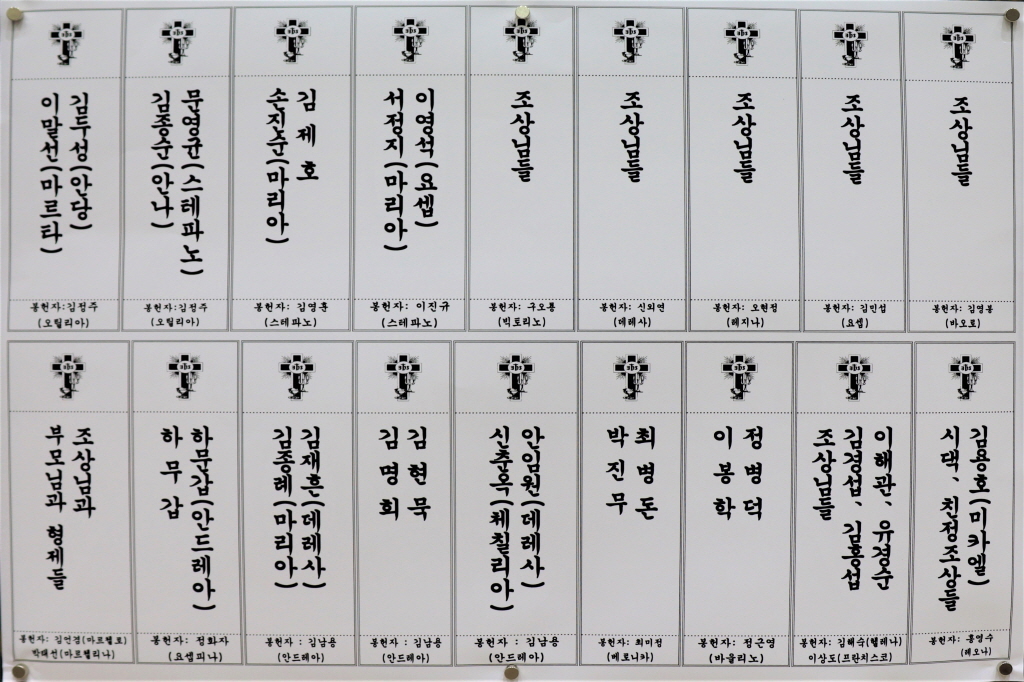 김두성(안당)
이말선(마르타)
봉헌자:김정주
(오틸리아)
문영균(스테파노)
김종순(안나)
봉헌자:김정주
(오틸리아)
김제호
손진순(마리아)
봉헌자: 김영훈
(스테파노)
이영석(요셉)
서정지(마리아)
봉헌자: 이진규
(스테파노)
조상님들
봉헌자: 구오룡
(빅토리노)
조상님들
봉헌자: 신외연
(데레사)
조상님들
봉헌자: 오현정
(레지나)
조상님들
봉헌자: 김민섭
(요셉)
조상님들
봉헌자: 김영봉
(바오로)
조상님과
부모님과 형제들
봉헌자: 김언겸(마르첼로)
박태선(마르첼리나)
하문갑(안드레아)
하무갑
봉헌자: 정화자
(요셉피나)
김재흔(데레사)
김종례(마리아)
봉헌자 : 김남용
(안드레아)
김현묵
김명희
봉헌자 : 김남용
(안드레아)
안임원(데레사)
신춘옥(체칠리아)
봉헌자 : 김남용
(안드레아)
최병돈
박진무
봉헌자: 최미정
(베로니카)
정병덕
이봉학
봉헌자: 정근영
(바울리노)
이해관、유경순
김경섭、김홍섭
조상님들
봉헌자: 김해숙(헬레나)
이상도(프란치스코)
김용호(미카엘)
시댁、친정조상들
봉헌자: 홍영수
(레오나)